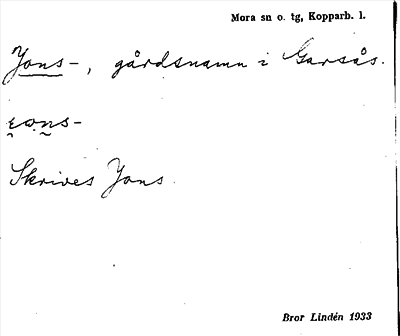 Mora sn o. tg, Kopparb. l.
Jons-, gårdsnamn i Garsås.
Skrives Jons
Bror Lindén 1933